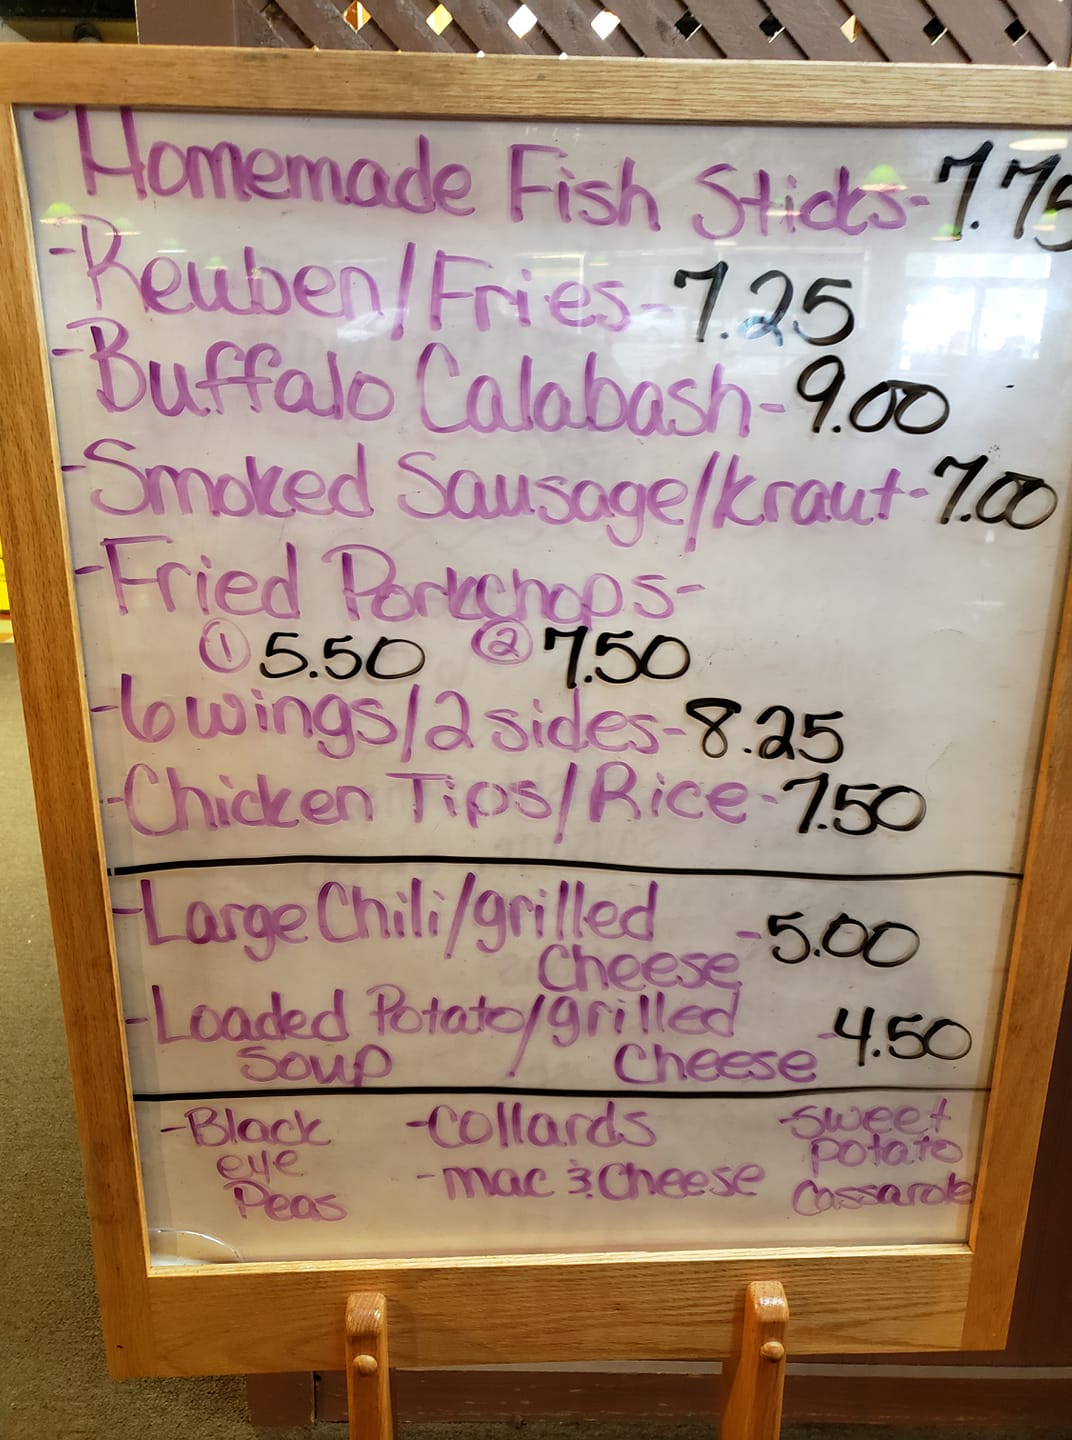 -Homemade Fish Sticks-7.75
-Reuben/Fries-7.25
-Buffalo Calabash-9.00
-Smoked Sausage/kraut-7.00
-Fried Porkchops-
① 5.50 ② 7.50
-6 wings/2 sides-8.25
-Chicken Tips/Rice-7.50
-Large Chili/grilled
Cheese -5.00
-Loaded Potato/grilled
Soup Cheese -4.50
-Black
eye
Peas
-Collards
-mac & Cheese
-Sweet
potato
Cassarole